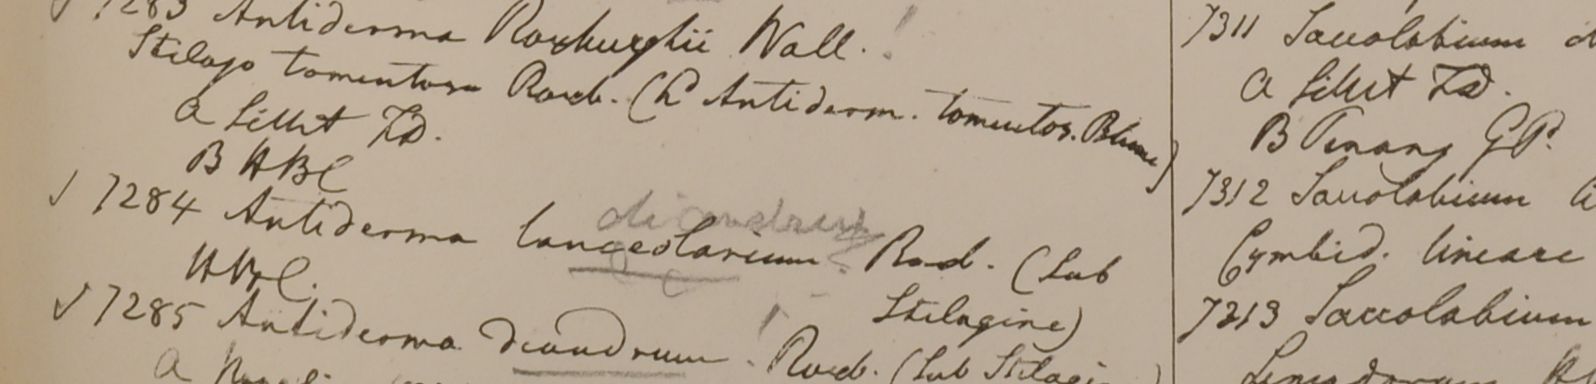 7283 Antiderma Roxburghii Wall. !
Stilago tomentosa Roxb. (h Antiderm. tomentos. Blume)
a Sillet FD.
B HBC
√ 7284 Antiderma lanceolarium Roxb. (Sub
diandrum
Stilagine)
HBC.
√ 7285 Antiderma diandrum. Roxb. (Sub
a
7311 Saccolabium
a Sillet FD.
B Penang GP.
7312 Saccolabium
Cymbid. lineare
7313 Saccolabium